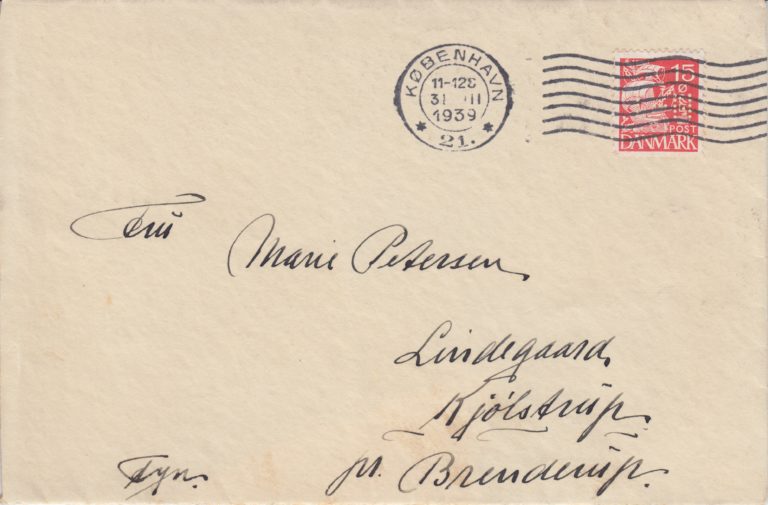 KØBENHAVN
11-12
1939
* 21. *
15
ØRE
POST
DANMARK
Fru Marie Petersen
Lindegaard,
Kjölstrup
Fyn. pr. Brenderup.